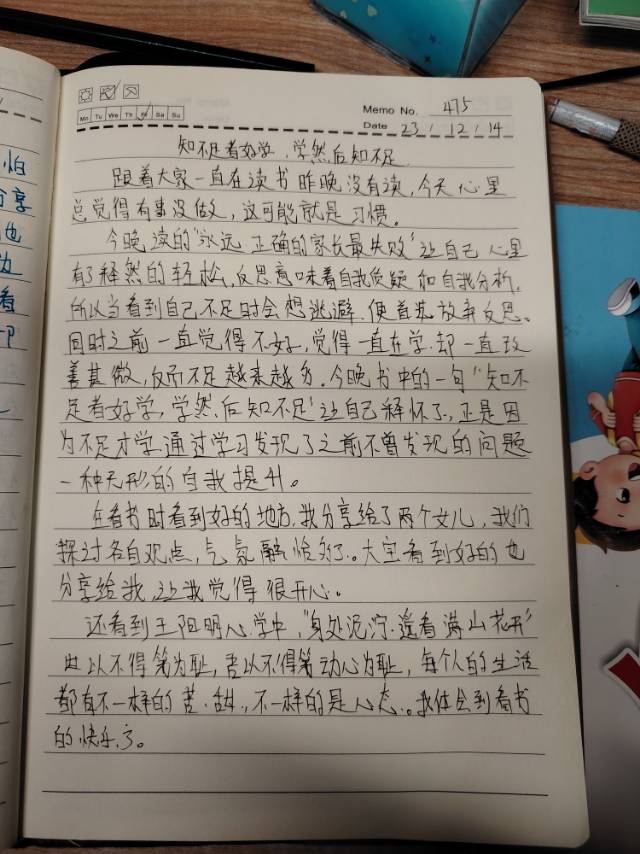 Mo Tu We Th Fr Sa Su
Memo No. 475
Date 23 / 12 / 14
知不足者好学，学然后知不足
跟着大家一直在读书昨晚没有读，今天心里
总觉得有事没做，这可能就是习惯。
今晚读的“永远正确的家长最失败”让自己心里
有了释然的轻松，反思意味着自我质疑和自我分析，
所以当看到自己不足时会想逃避，便首先放弃反思。
同时之前一直觉得不好，觉得一直在学，却一直改
善甚微，反而不足越来越多。今晚书中的一句“知不
足者好学，学然后知不足”让自己释怀了，正是因
为不足才学，通过学习发现了之前不曾发现的问题
一种无形的自我提升。
在看书时看到好的地方，我分享给了两个女儿，我们
探讨各自观点，气氛融恰多了。大宝看到好的也
分享给我，让我觉得很开心。
还看到王阳明心学中，“身处泥泞，遥看满山花开”
以不得第为耻，吾以不得第动心为耻，每个人的生活
都有不一样的苦、甜，不一样的是心态。我体会到看书
的快乐了。
怕
分享
也
为
看